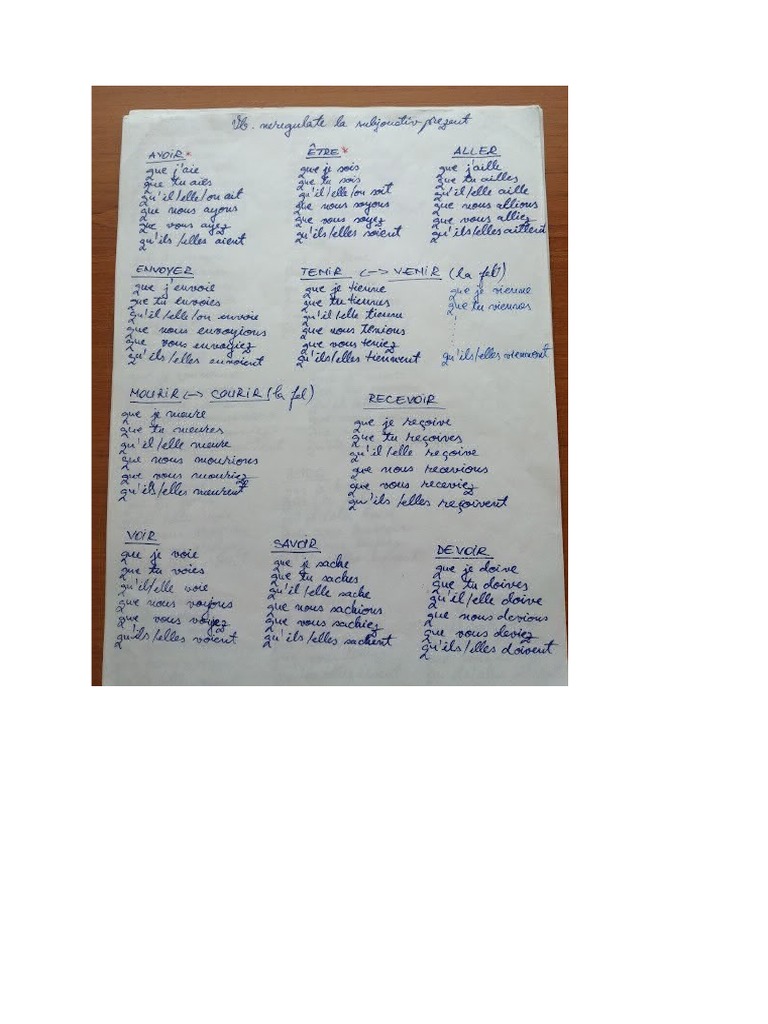 Vb. neregulate la subjonctiv prezent
AVOIR*
que j'aie
que tu aies
qu'il/elle/on ait
que nous ayons
que vous ayez
qu'ils/elles aient
ÊTRE*
que je sois
que tu sois
qu'il/elle/on soit
que nous soyons
que vous soyez
qu'ils/elles soient
ALLER
que j'aille
que tu ailles
qu'il/elle aille
que nous allions
que vous alliez
qu'ils/elles aillent
ENVOYER
que j'envoie
que tu envoies
qu'il/elle/on envoie
que nous envoyions
que vous envoyiez
qu'ils/elles envoient
TENIR <-> VENIR (la fel)
que je tienne
que tu tiennes
qu'il/elle tienne
que nous tenions
que vous teniez
qu'ils/elles tiennent
que je vienne
que tu viennes
qu'ils/elles viennent
MOURIR <-> COURIR (la fel)
que je meure
que tu meures
qu'il/elle meure
que nous mourions
que vous mouriez
qu'ils/elles meurent
RECEVOIR
que je reçoive
que tu reçoives
qu'il/elle reçoive
que nous recevions
que vous receviez
qu'ils/elles reçoivent
VOIR
que je voie
que tu voies
qu'il/elle voie
que nous voyons
que vous voyez
qu'ils/elles voient
SAVOIR
que je sache
que tu saches
qu'il/elle sache
que nous sachions
que vous sachiez
qu'ils/elles sachent
DEVOIR
que je doive
que tu doives
qu'il/elle doive
que nous devions
que vous deviez
qu'ils/elles doivent